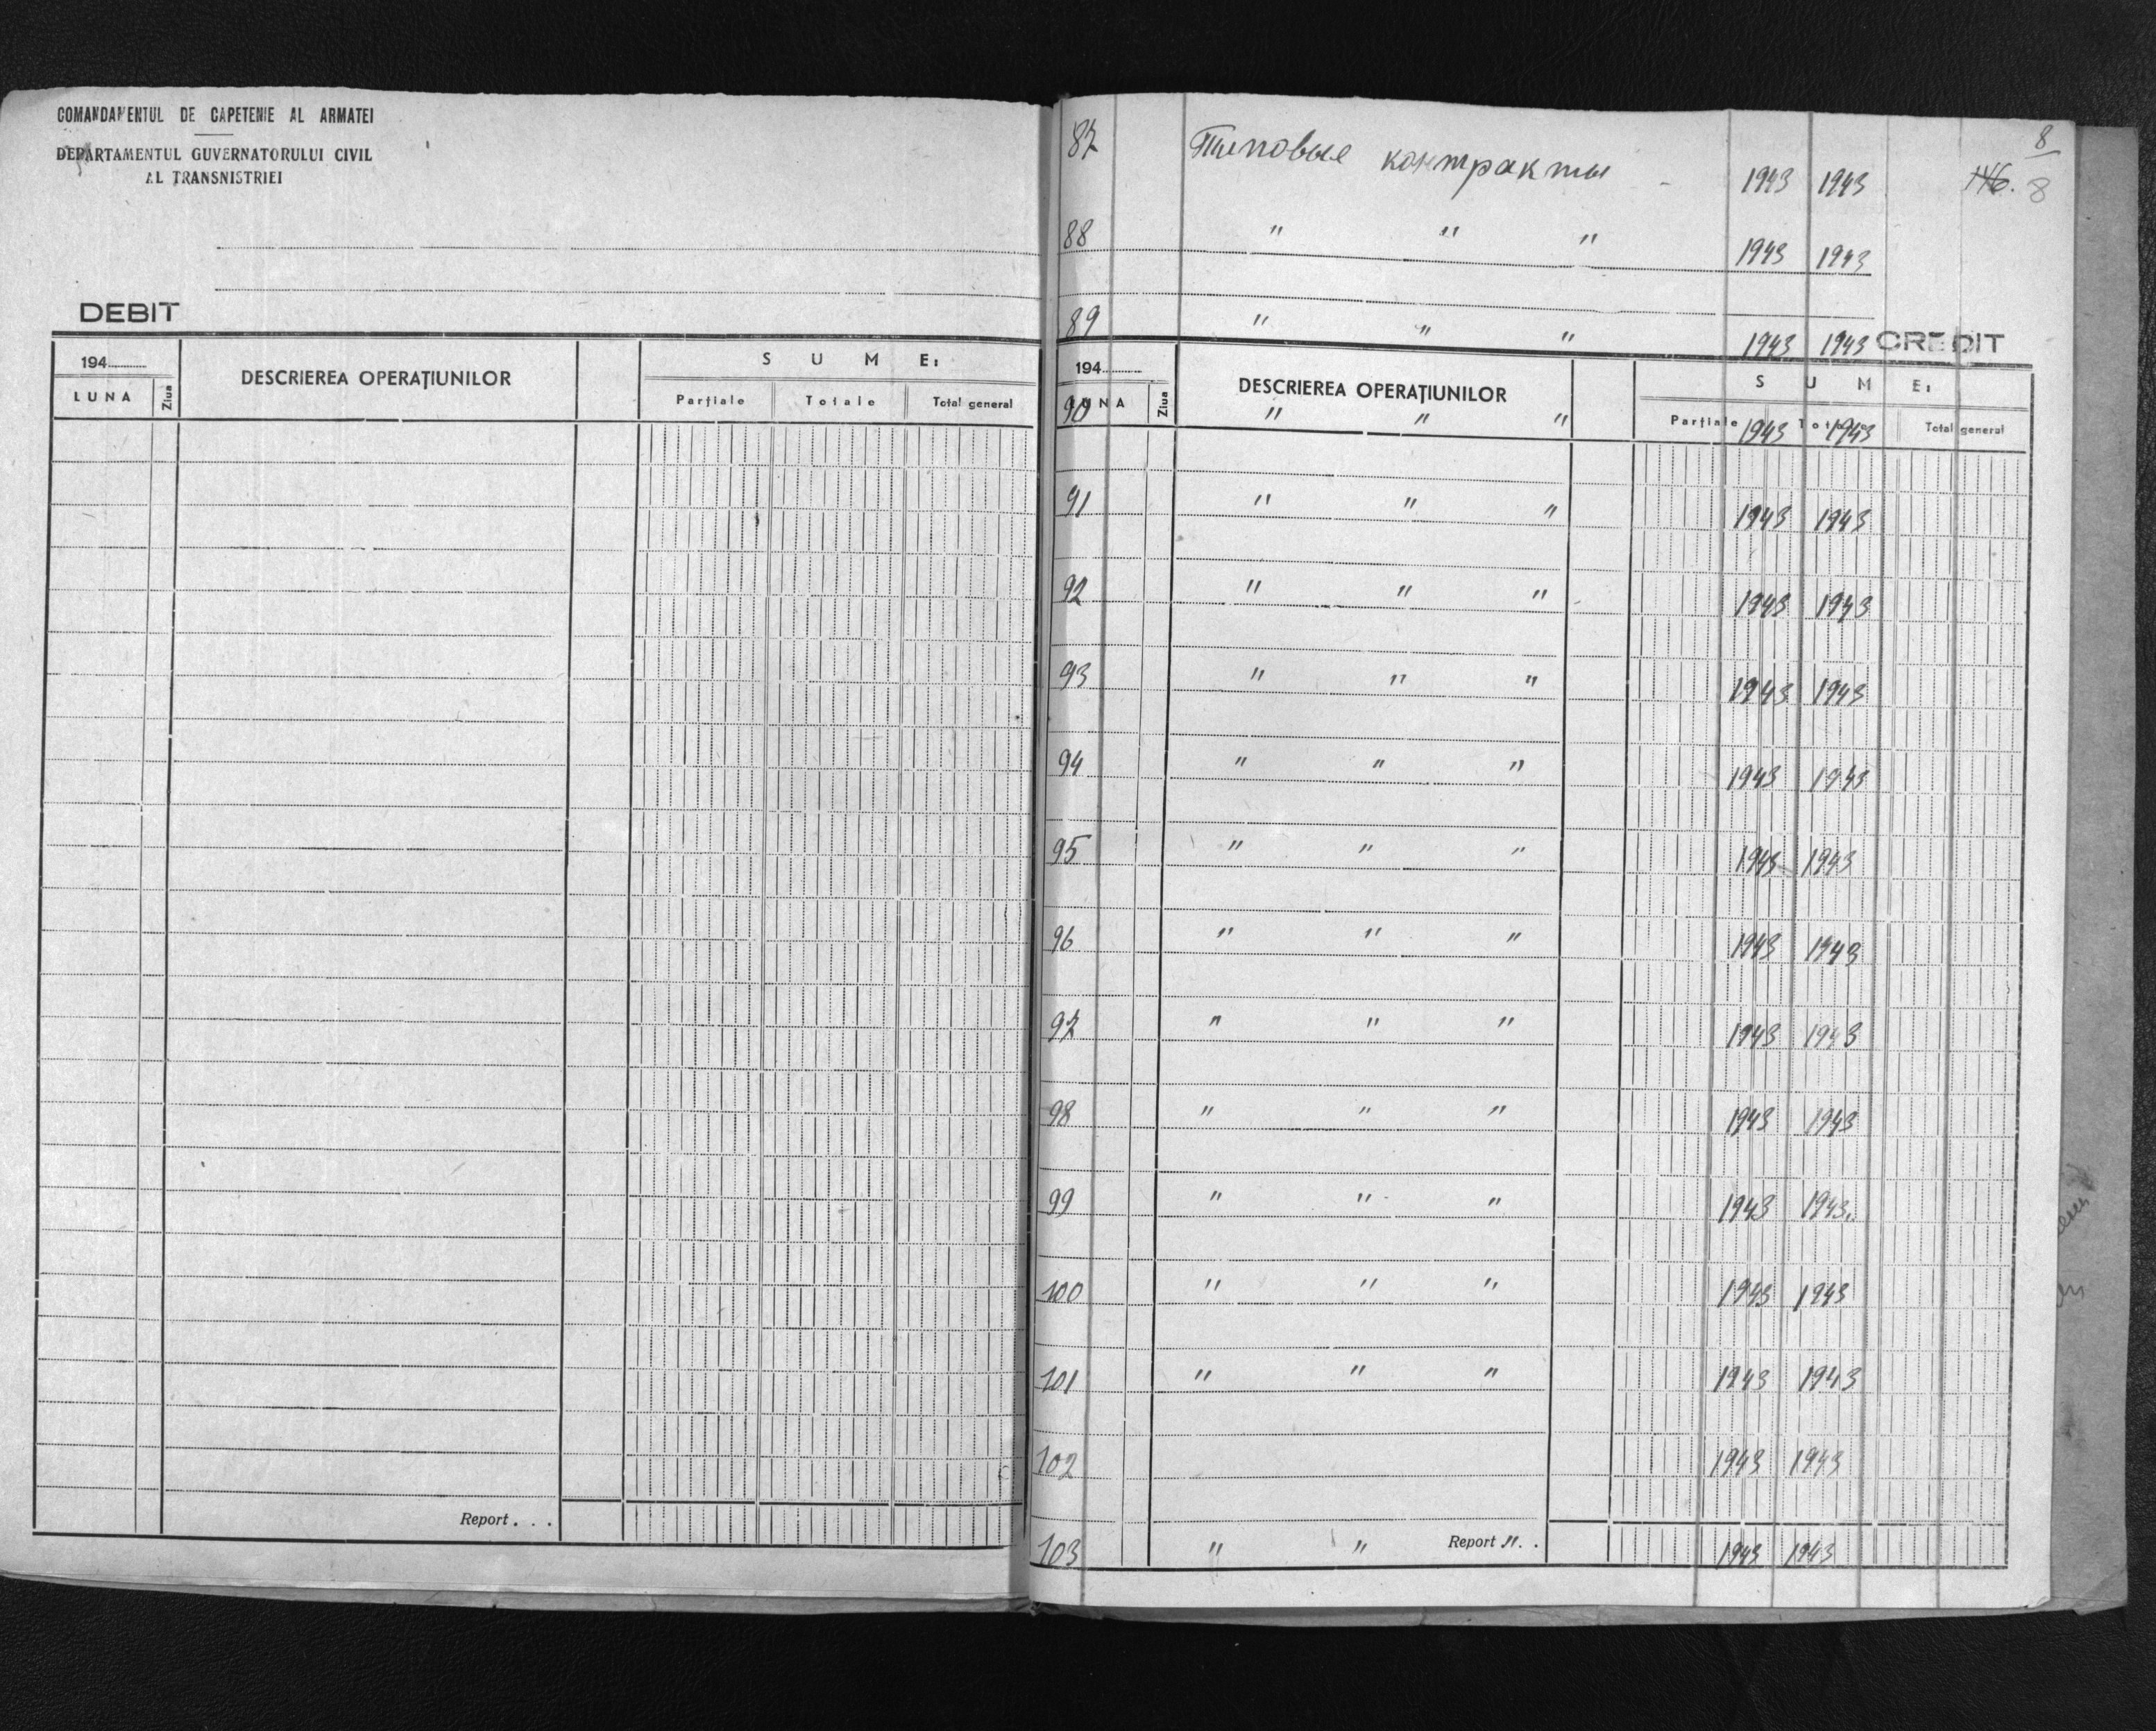 COMANDAMENTUL DE CAPETENIE AL ARMATEI
DEPARTAMENTUL GUVERNATORULUI CIVIL
AL TRANSNISTRIEI
DEBIT
194
LUNA
Ziua
DESCRIEREA OPERAȚIUNILOR
SUME:
Parțiale
Totale
Total general
Report . . .
8
146. 8
87 Типовые контракты - 1943 1943
88 " " " 1943 1943
89 " " " 1943 1943
CREDIT
194
LUNA
Ziua
DESCRIEREA OPERAȚIUNILOR
SUME:
Parțiale
Totale
Total general
90 " " " 1943 1943
91 " " " 1943 1943
92 " " " 1943 1943
93 " " " 1943 1943
94 " " " 1943 1943
95 " " " 1943 1943
96 " " " 1943 1943
97 " " " 1943 1943
98 " " " 1943 1943
99 " " " 1943 1943
100 " " " 1943 1943
101 " " " 1943 1943
102 1943 1943
103 " " Report " . . 1943 1943